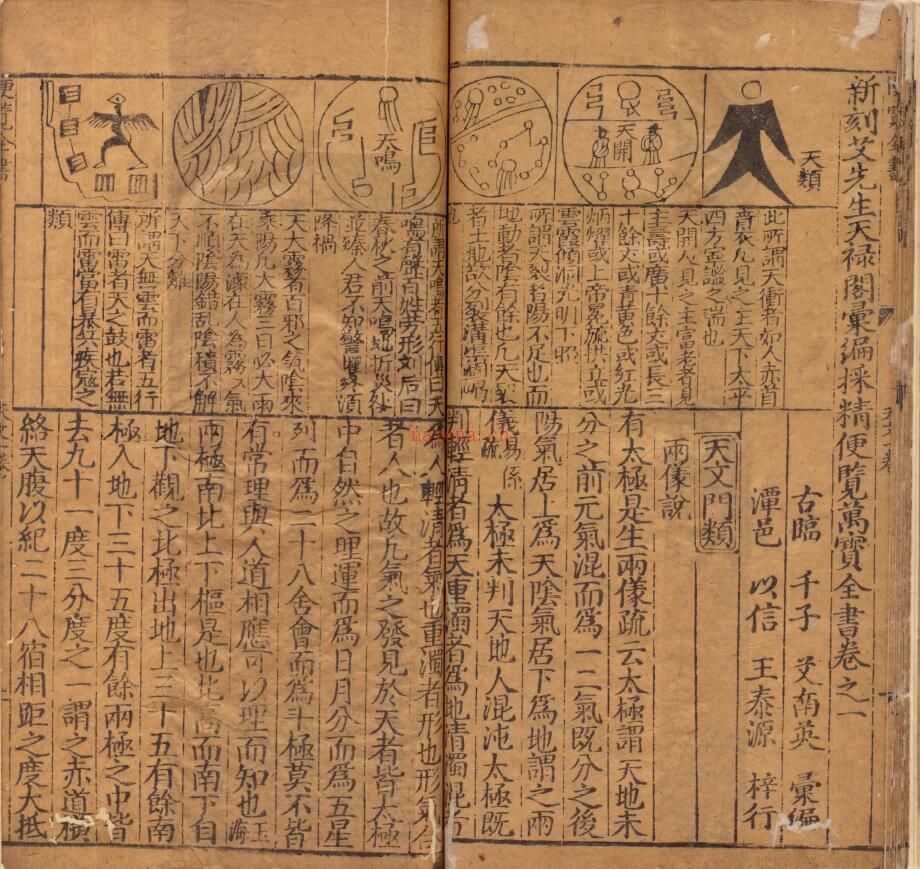 新刻艾先生天禄閣彙編採精便覽萬寶全書卷之一
古臨 千子 艾南英 彙編
潭邑 以信 王泰源 梓行
天類
天開
此所謂天衝者如人赤首
青衣凡見之主天下太平
四方寧謐之瑞也
天開人見之主富者者見
主壽或廣十餘丈或長二
十餘丈或青黄色或紅光
炳燿或上帝冕旒拱立或
雲霞傾洞光明下照
所謂天裂者陽不足也而
地動者陰有餘也凡天裂
天文門類
兩儀說
有太極是生兩儀疏云太極謂天地未
分之前元氣混而爲一二氣既分之後
陽氣居上爲天陰氣居下爲地謂之兩
儀 易係疏 太極未判天地人混沌太極既
判輕清者爲天重濁者爲地清濁混者
天鳴
所謂天鳴者五行傳曰天
鳴有聲百姓勞形劉后曰
春秋之前天鳴地坼災殃
並臻人君不知警懼終須
降禍
天大霧者百邪之氣陰來
乘陽凡大霧三日必大雨
在天為濛在人為霧霧氣
不順陰陽錯亂陰積不解
天下分離
所謂天無雲而雷者五行
傳曰雷者天之鼓也若無
雲而雷當有暴兵疾寇之
類
爲人輕清者氣也重濁者形也形氣合
者人也故凡氣之發見於天者皆太極
中自然之理運而爲日月分而爲五星
列而爲二十八舍會而爲斗極莫不皆
有常理與人道相應可以理而知也 玉海
兩極南北上下樞是也北高而南下自
地下觀之北極出地上三十五有餘南
極入地下三十五度有餘兩極之中皆
去九十一度三分度之一謂之赤道橫
絡天腹以紀二十八宿相距之度大抵